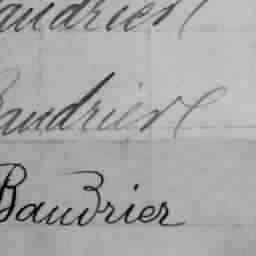 Baudrier
Baudrier
Baudrier